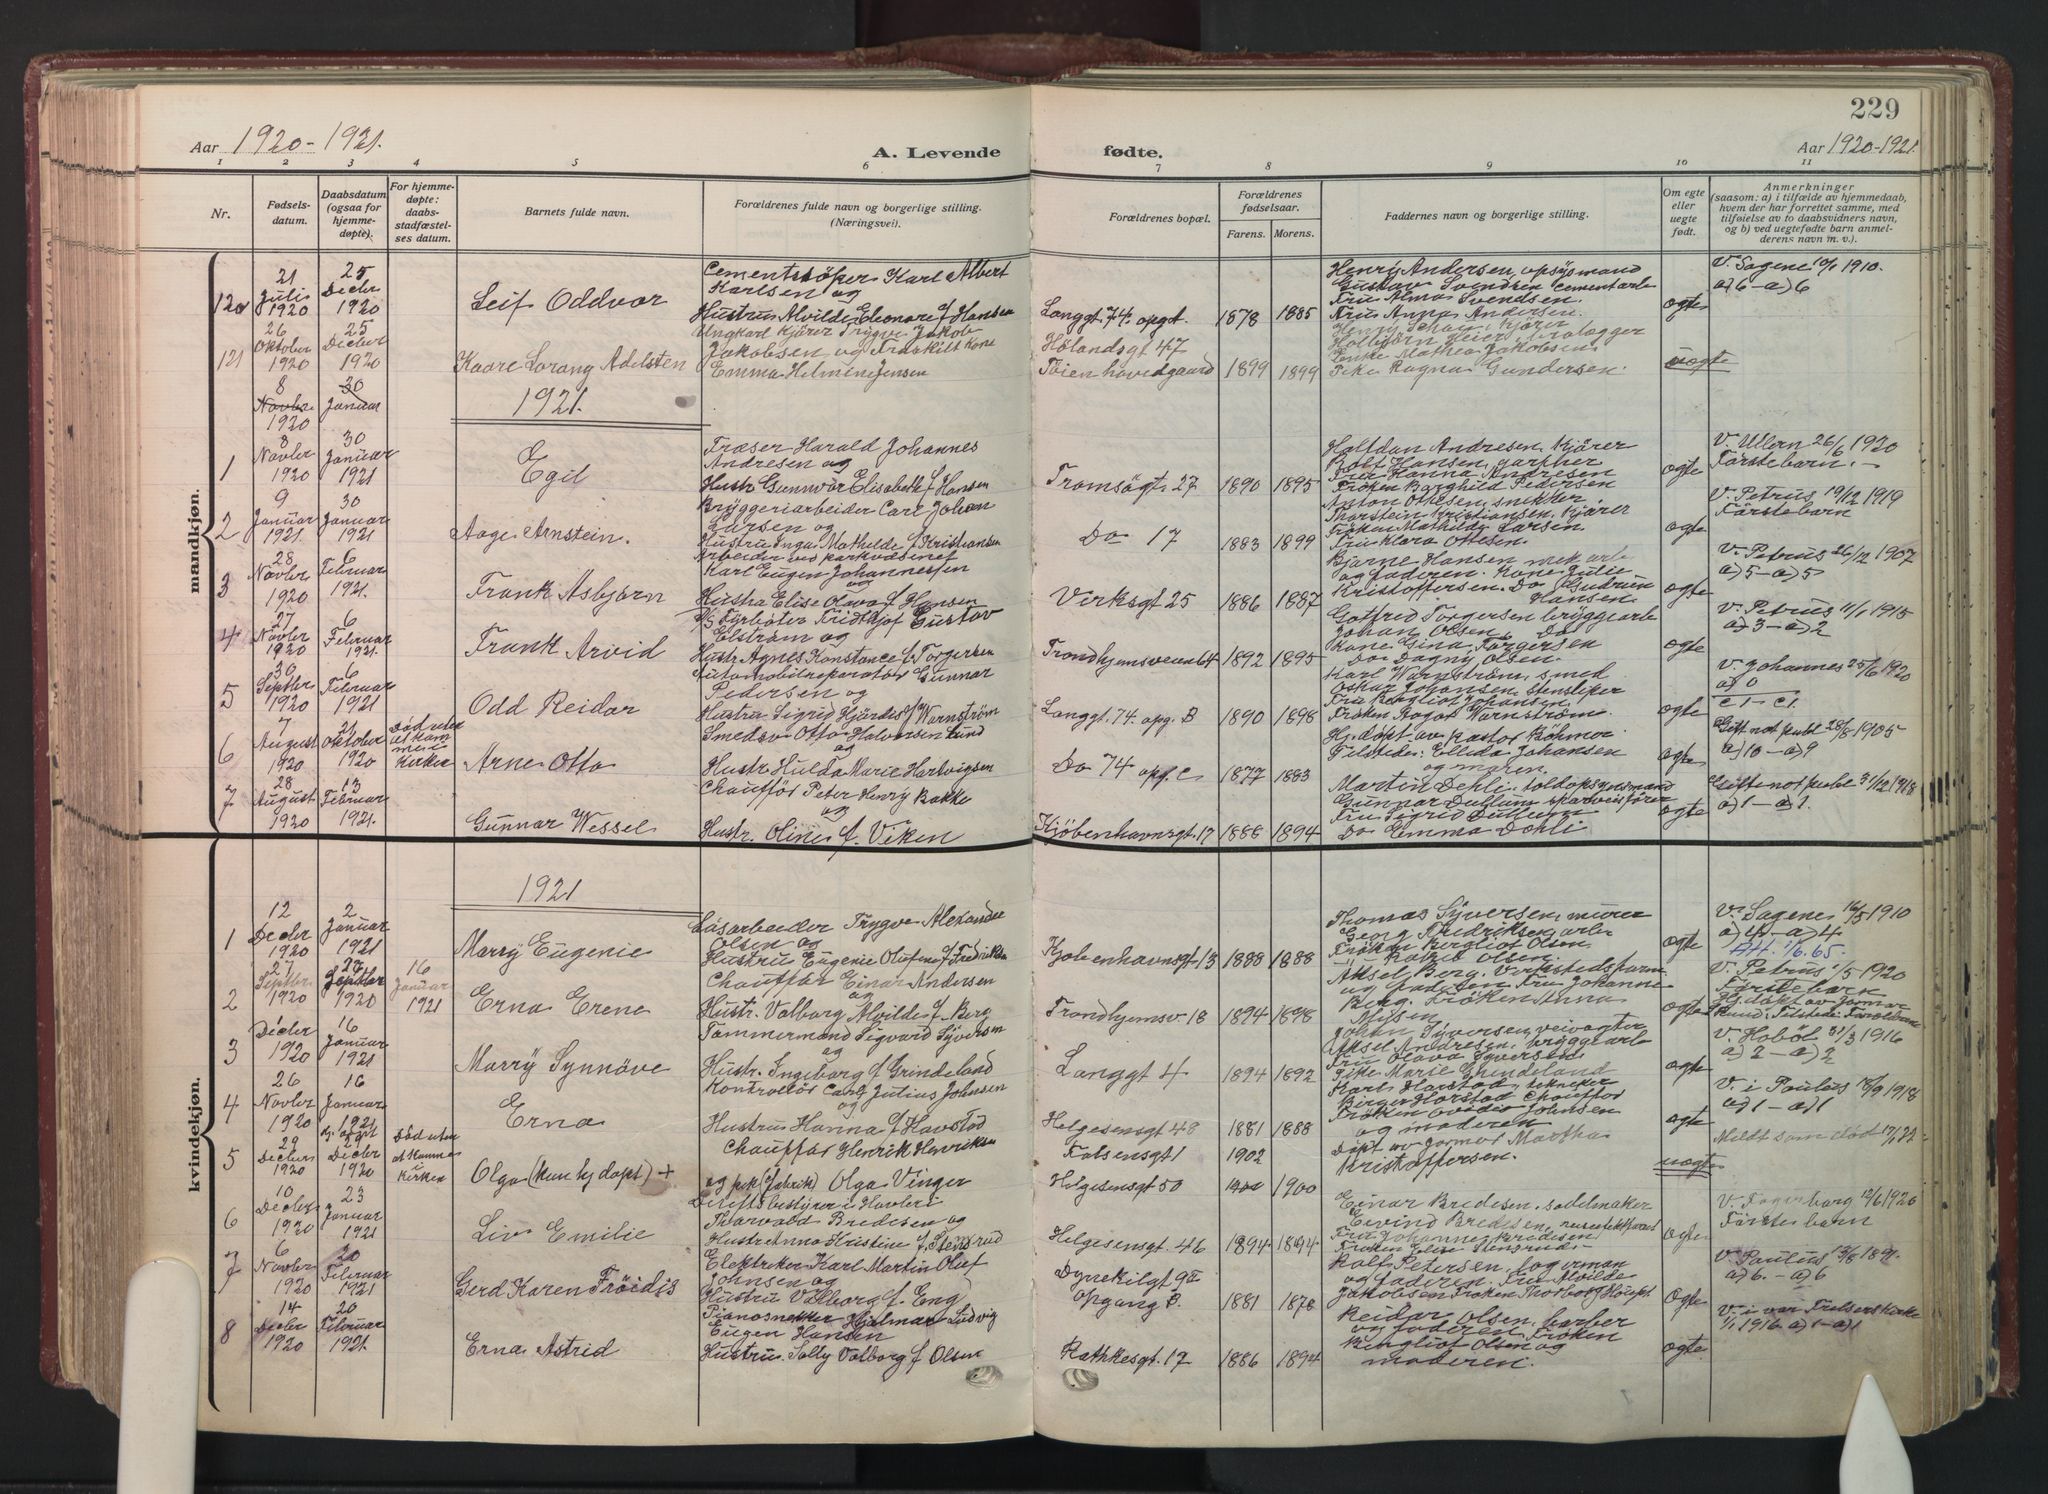 229
Aar 1920-1921.
A. Levende
fødte.
Aar 1920-1921.
1 2 3 4 5 6 7 8 9 10 11
Nr.
Fødsels-
datum.
Daabsdatum
(ogsaa for
hjemme-
døpte).
For hjemme-
døpte:
daabs-
stadfæstel-
ses datum.
Barnets fulde navn.
Forældrenes fulde navn og borgerlige stilling.
(Næringsvei).
Forældrenes bopæl.
Forældrenes
fødselsaar.
Farens. Morens.
Faddernes navn og borgerlige stilling.
Om egte
eller
uegte
født.
Anmerkninger
(saasom: a) i tilfælde av hjemmedaab,
hvem der har forrettet samme, med
tilføielse av to daabsvidners navn,
og b) ved uegtefødte barn anmel-
derens navn m. v.).
mandkjøn.
120
21
Juli
1920
25
Decbr
1920
Leif Oddvar
Cementstöper Karl Albert
Karlsen og
Hustru Alvilde Eleonore f Hansen
Langgt. 74, opgt.
1878 1885
Henry Andersen, opsysmand
Gustav Svendsen cementarb
Fru Alma Svendsen.
Fru Anna Andersen.
ægte
V. Sagene 10/1 1910.
a) 6 - a) 6
121
26
Oktober
1920
25
Decber
1920
Kaare Lorang Adelsten
Ungkarl Kjörer Trygve Jakob
Jakobsen og Fraskilt Kone
Emma Helmine Jensen
Hølandsgt 47
Töien hovedgaard
1899 1899
Enke Mathea Jakobsen
Pike Ragna Gundersen.
uægte
8
Novbr
1920
30
Januar
1921.
1
8
Novbr
1920
30
Januar
1921
Egil
Fræser Harald Johannes
Andresen og
Hustr Gunnvor Elisabeth f Hansen
Tromsøgt 27
1890 1895
Halfdan Andresen, Kjörer
Rolf Hansen, gartner
Fru Hanna Andresen
Fröken Borghild Pedersen
ægte
V. Ullern 26/6 1920
Förstebarn. -
2
9
Januar
1921.
30
Januar
1921
Aage Arnstein.
Bryggeriarbeider Carl Johan
Larsen og
Hustru Inga Mathilde f Kristiansen
Do 17
1883 1899
Anton Ottesen, snekker
Thorstein Kristiansen, Kjörer
Fröken Mathilde Larsen
Fru Klara Ottesen.
ægte
V. Petrus 19/12 1919
Förstebarn
3
28
Novbr
1920
6
Februar
1921.
Frank Asbjørn
Karl Eugen Johannessen
og
Hustru Elise Olava f Hansen
Verksgt 25
1886 1887
Bjarne Hansen mek arb
og faderen. Kone Julie
Kristoffersen. Do Gudrun
Hansen.
ægte
V. Petrus 26/12 1907
a) 5 - a) 5
4
27
Novbr
1920
6
Februar
1921.
Frank Arvid
Fyrböter Fridthjof Gustav
Elström og
Hustr. Agnes Konstance f Torgersen
Trondhjemsveien 64
1892 1895
Gotfred Torgersen bryggearb
Johan Olsen, Do
Kone Gina Torgersen
Do Dagny Olsen.
ægte
V. Petrus 11/1 1915
a) 3 - a) 2
5
30
Septbr
1920
6
Februar
1921
Odd Reidar
Automobilreparatör Gunnar
Pedersen og
Hustru Sigrid Hjördis f Warnström
Langgt. 74. opg. B
1890 1898
Karl Warnström, smed
Oskar Johansen, stensliper
Fru Bergliot Johansen
Fröken Aagot Warnström
ægte
V. Johannes 25/6 1920
a) 0
c 1 - c 1.
6
7
August
1920
21
Oktober
1920
Död uten
at kom
me i
Kirken
Arne Otto
Smedsv Otto Halvorsen Lund
og
Hustr. Hulda Marie Hartvigsen
Do 74 opg. C
1877 1883
Hj. döpt av Pastor Böhmer
Tilstede: Ellida Johansen
og moren.
ægte
Gift not publ 28/8 1905
a) 10 - a) 9
7
28
August
1920
13
Februar
1921.
Gunnar Wessel
Chaufför Peter Henry Bakke
og
Hustr. Oline f. Viken
Kjöbenhavnsgt. 17
1888 1894
Martin Dehli, toldopsynsmand
Gunnar Dullum sporveisförer
Fru Sigrid Dullum
Do Emma Dehli
ægte
Gifte not publ 31/12 1918
a) 1 - a) 1.
kvindekjøn.
1921
1
12
Decbr
1920
2
Januar
1921
Marry Eugenie
Trygve Alexander
Olsen og
Hustru Eugenie Olufine f Fredriksen
Kjöbenhavnsgt 13
1888 1888
Thomas Syversen, murer
Georg Fredriksen arb
Fröken Bergliot Olsen
ægte
V. Sagene 16/5 1910
a) 4 - a) 4
Att. 1/6. 65.
2
27
Septbr
1920
27
Septbr
1920
16
Januar
1921
Erna Erene
Chaufför Einar Andersen
og
Hustr. Valborg Alvilde f Berg
Trondhjemsv 18
1894 1898
Aksel Berg, Verkstedsform
og faderen Fru Johanne
Berg. Fröken Anna
Nilsen
ægte
V. Petrus 1/5 1920
Förstebarn
Hj. döpt av Jormor
3
1
Decbr
1920
16
Januar
1921
Marry Synnöve
Tömmermand Sigvard Syversen
og
Hustr. Ingeborg f Grindeland
Langgt 4
1894 1892
Johan Syversen, veivogter
Aksel Andresen, bryggearb
Fru Olava Syversen
Pike Marie Grindeland
ægte
V. Hoböl 31/3 1916
a) 2 - a) 2
4
26
Novbr
1920
16
Januar
1921
Erna
Kontrollör Carl Julius Johnsen
og
Hustru Hanna f Havstad
Helgesensgt 48
1881 1888
Karl Harstad, tekniker
Birger Harstad Chauffør
og moderen
ægte
V. i Paulus 18/9 1918
a) 1 - a) 1
5
29
Decbr
1920
29
Decbr
1920
Död uten
at komme
i
Kirken
Olga (kun hj döpt) +
Chauffør Henrik Henriksen
og pike (fabrik) Olga Vinger
Falsensgt 1
Helgesensgt 50
1902
1900
Döpt av Jormor Martha
Kristoffersen.
uægte
Meldt som død
6
10
Decbr
1920
23
Januar
1921
Liv Emilie
Thorvald Bredesen og
Hustr Anna Kristine f. Stensrud
Helgesensgt. 46
1894 1894
Einar Bredesen, sadelmaker
Eivind Bredesen,
Fru Johanne Bredesen
Fröken Else Stensrud
ægte
V. Fagerborg 12/6 1920
Förstebarn
7
6
Novbr
1920
20
Februar
1921
Gerd Karen Fröidis
Elektriker Karl Martin Oluf
Johnsen og
Hustru Valborg f. Eng
Dynekilgt 9 II
Opgang B.
1881 1878
Rolf Petersen, lagerman
og faderen, Fru Alvilde
Jakobsen Fröken Thorborg Houpt
Ægte
V. Paulus
a) 6. - a) 6
8
14
Decbr
1920
20
Februar
1921.
Erna Astrid
Pianosnekker Hjalmar Ludvig
Eugen Hansen
Hustru Solly Valborg f Olsen
Rathkesgt. 17
1886 1894
Reidar Olsen, barber
og faderen. Fröken
Bergliot Olsen og
moderen.
ægte
V. i vor Frelserskirke
1/1 1916 a) 1 - a) 1